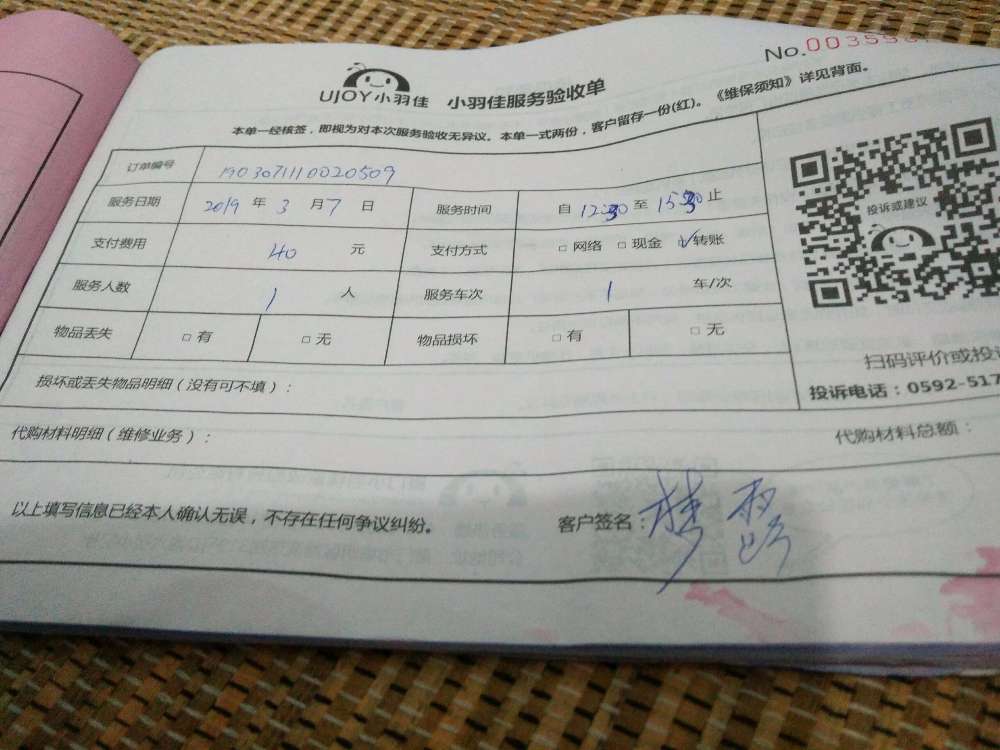 No.00355
UJOY小羽佳 小羽佳服务验收单
本单一经核签，即视为对本次服务验收无异议。本单一式两份，客户留存一份(红)。《维保须知》详见背面。
订单编号 190307110020509
服务日期 2019 年 3 月 7 日 服务时间 自 12:30 至 15:30 止
支付费用 40 元 支付方式 □ 网络 □ 现金 ☑ 转账
服务人数 1 人 服务车次 1 车/次
物品丢失 □ 有 □ 无 物品损坏 □ 有 □ 无
投诉或建议
扫码评价或投
投诉电话：0592-517
损坏或丢失物品明细（没有可不填）：
代购材料明细（维修业务）： 代购材料总额：
以上填写信息已经本人确认无误，不存在任何争议纠纷。 客户签名：